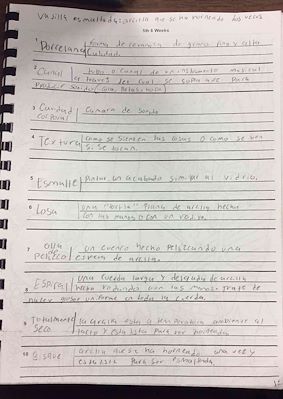 Vasilla esmaltada: arcilla que se ha horneado dos veces
5th 6 Weeks
1 Porcelana forma de ceramica de grano fino y alta
calidad.
2 Canal tubo o canal de un instrumento musical
a través del cual se sopla aire para
producir sonido/
3 Cavidad Camara de sonido
corporal
4 Textura Como se sienten las cosas o como se ven
si se tocan.
5 Esmalte Pintar, un acabado similar al vidrio.
6 Losa una "tortilla" plana de arcilla hecha
con las manos o con un rodillo.
7 olla un cuenco hecho pellizcando una
pellizco esfera de arcilla.
8 Espiral Una cuerda larga y delgada de arcilla
hecha rodandola con las manos. trate de
hacer grosor uniforme en toda la cuerda.
9 Totalmente la arcilla esta a temperatura ambiente al
Seco tacto y esta lista para ser horneada.
10 arcilla que se ha horneado una vez y
esta lista para ser esmaltada.